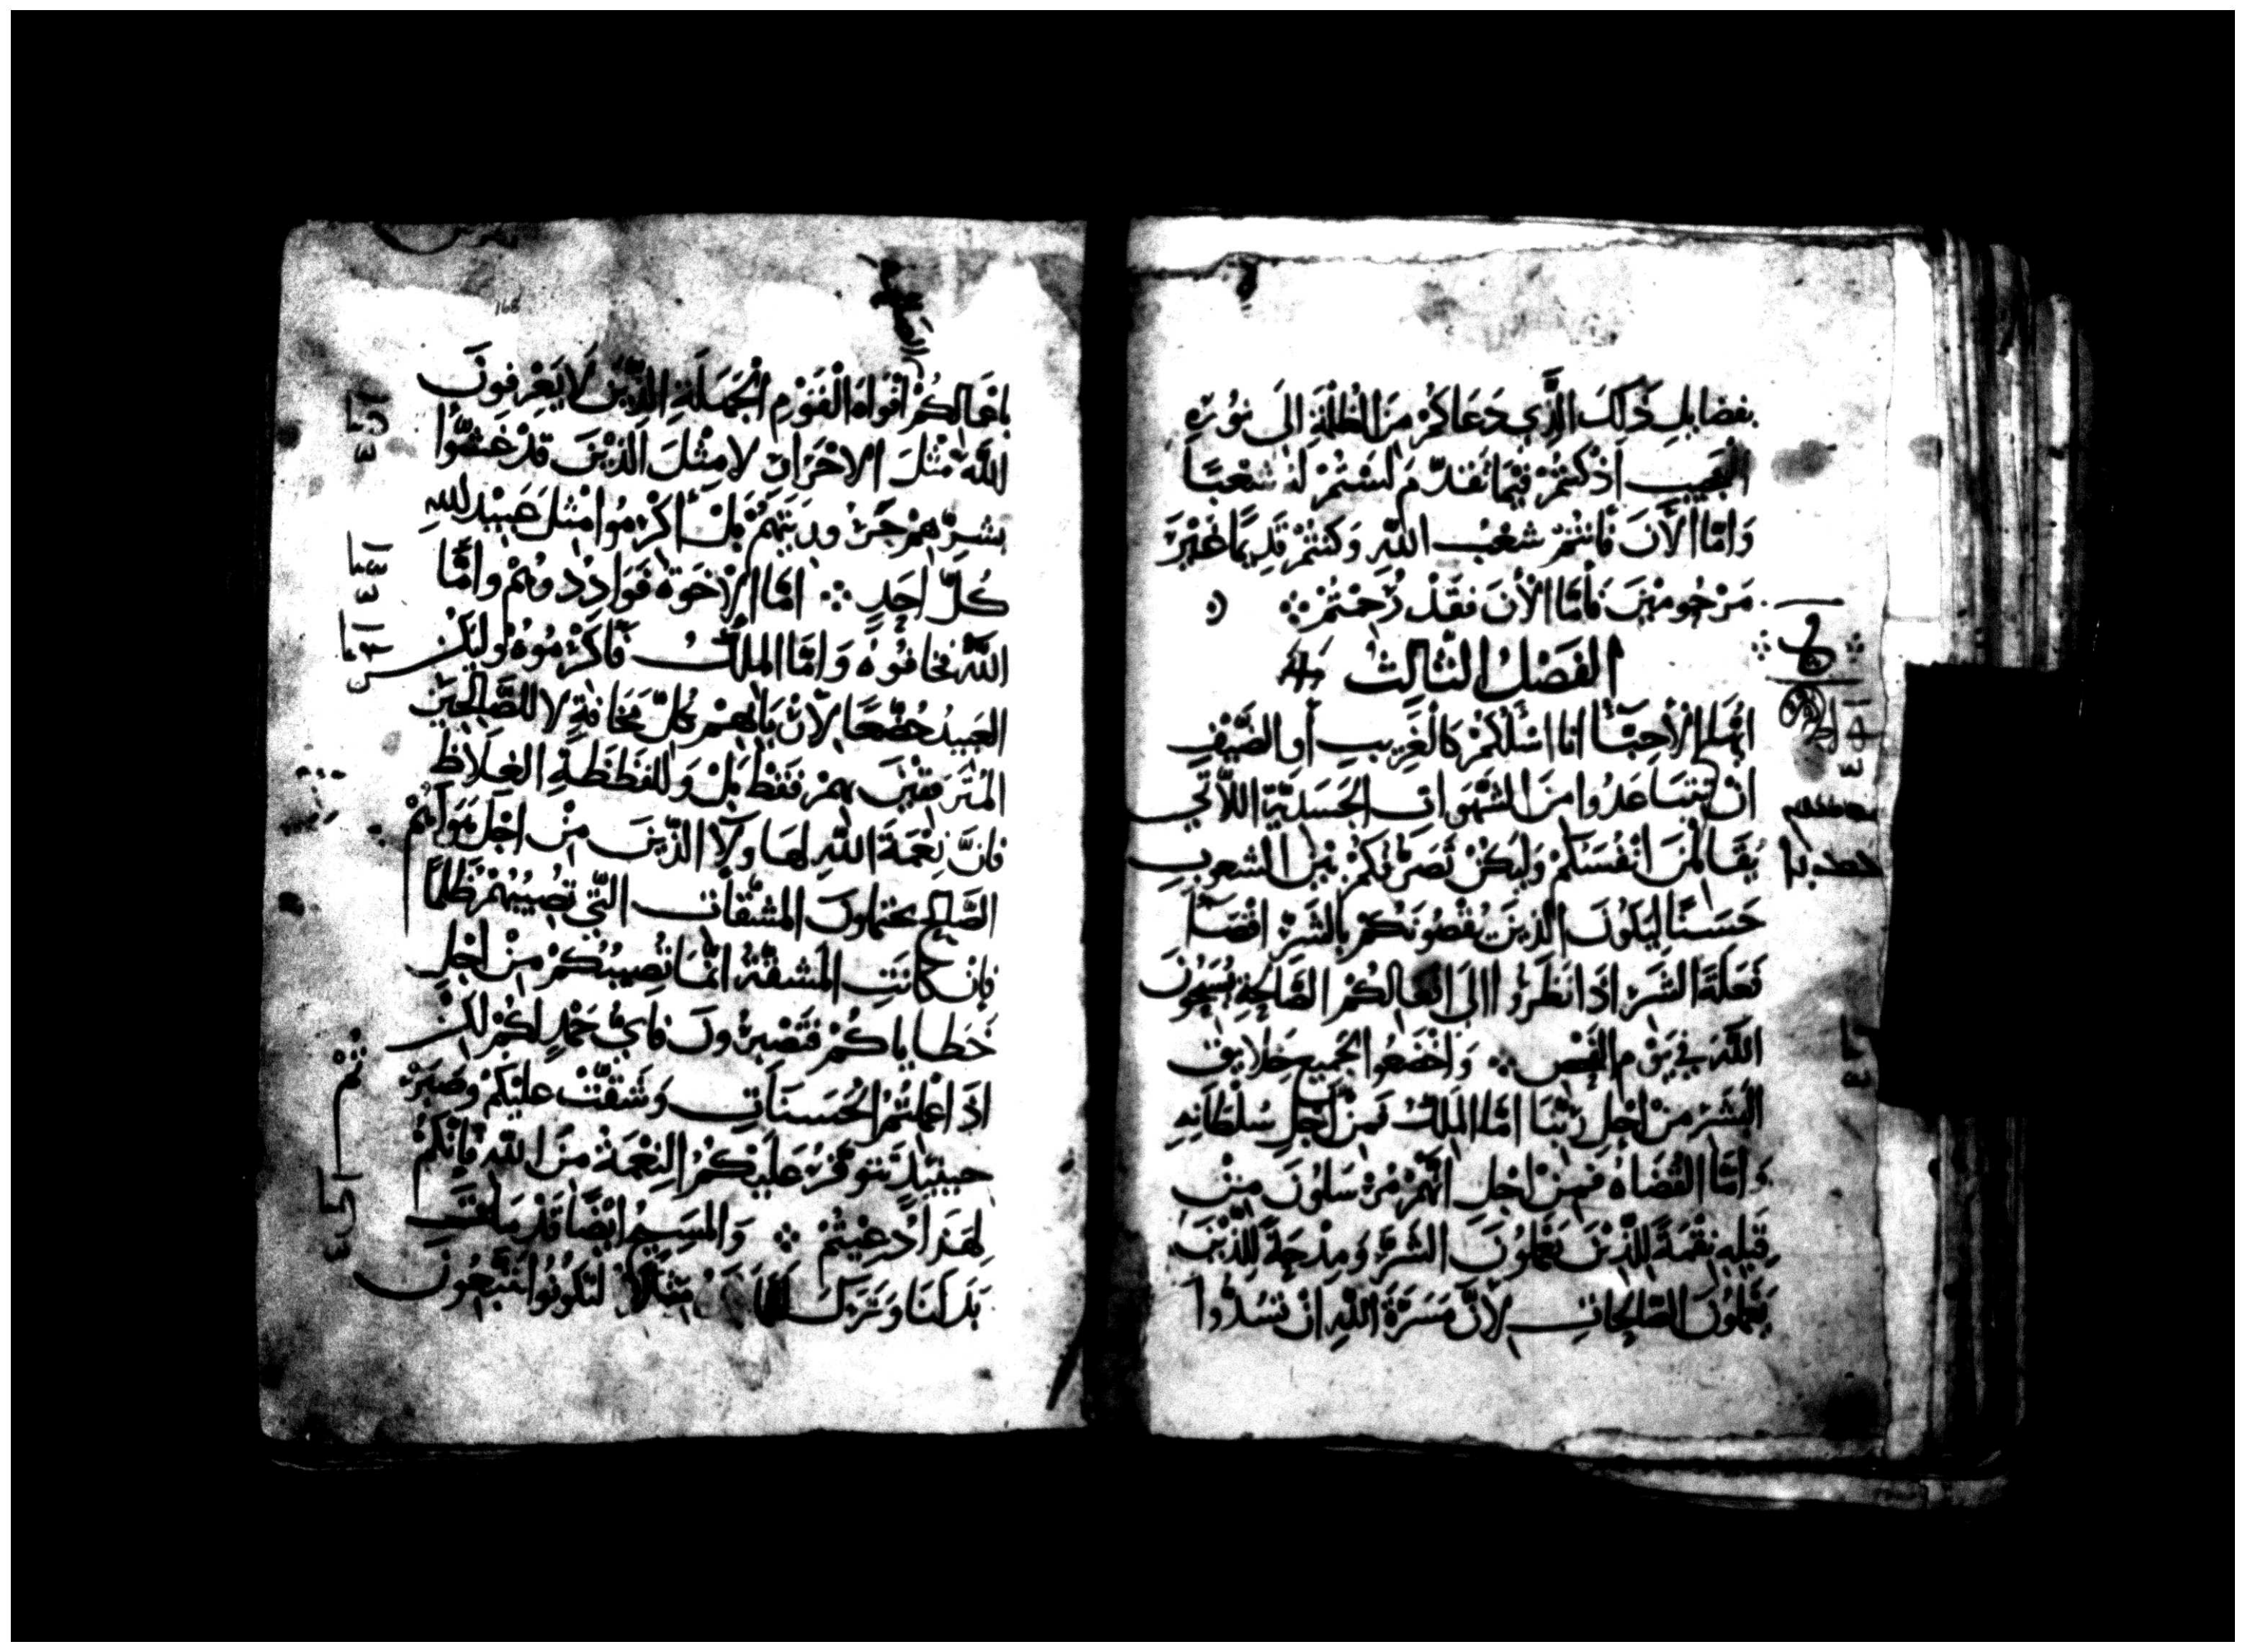 بفضايلِ ذَلكَ الَّذِي دَعَاكُمْ مِنَ الظُلْمَةِ الَى نوُرهِ
العَجِيبِ اذْ كُنتُمْ فِيْمَا تَقَدّم لَسْتُمْ لَهُ شعْبًا
وَامّا الآنَ فَانْتُمْ شعْبُ اللّهِ وَكنتُمْ قدِيمًا غَيْرَ
مَرْحُومِيْنَ فَأمّا الأنَ فقَدْ رُحِمْتُمْ
الفَصْلُ الثَالِث
ايُّهَا الأحِبَّا انا اسْلُكُمْ كَالْغَرِيبِ أو الضَّيْفِ
انْ تتَبَاعَدُوا مِنَ الشَّهَوات الجَسَدَيّةِ اللاَّتي
يُقَاتِلْنَ انْفُسَكُمْ وَليَكُنْ تَصَرّفُكُمْ بَيْنَ الشعوبِ
حَسَنًا ليَكُونَ الذينَ يُقْصُونَكُمْ بالشَرِّ
فَعَلَةَ الشَرّ اذَا نَظَرُوا الى اعْمَالِكُمْ الصَّالِحَةِ يُسَبّحُونَ
اللّهَ في يَوْمِ الفَحْصِ وَاخْضَعُوا لجَميعِ خَلايقِ
البَشَرْ مِنْ اجْلِ رَبّنَا امّا المَلِكُ فَمِنْ اجْلِ سُلْطَانِهِ
وَامّا القُضَاهُ فمِنْ اجلِ انّهُمْ مُرْسَلُونَ مِنْ
قِبَلِهِ نِقْمَةً لِلّذِيْنَ يَعْمَلُونَ الشَرَّ وَمِدْحَةً لِلّذِيْنَ
يَعْمَلُونَ الصّالِحَاتِ لأَنَّ مَسَرَّةَ اللّهِ انْ تسُدُّوا
168
باعْمَالِكُمْ افْوَاهَ الْقَوْمِ الْجَهَلَةِ الذِّيْنَ لا يَعْرِفونَ
اللّهَ مثْلَ الاحْرَارِ لا مِثْلَ الذِيْنَ قدْ
بشرِّهمْ بَلْ أكْرِمُوا مثلَ عَبيْد للّهِ
كُلَّ احَدٍ امّا الاخوَةُ فَوَادِدُوهُمْ وامَّا
اللّهَ فخَافُوهُ وَامّا الملكُ فأكْرِمُوهُ وليَكُنْ
العَبِيدُ خُضَّعًا لأرْبَابِهِمْ بكُلِّ مَخَافةٍ لا للصَّالِحِيْنَ
المُتَرفقِيْنَ بهِمْ فقَطْ بَلْ وَللفَظَظَةِ الغِلَاظِ
فانَّ نِعْمَةَ اللّهِ لهَا وَلآ الذّينَ مِنْ اجْلِ
الصّالحِ يحتملونَ المشقّاتِ التّي تُصِيبُهُمْ ظُلمًا
فإن كَانَتِ المَشقّةُ انّمَا تُصِيبُكُمْ مِنْ اجْلِ
خَطاياكُمْ فتَصْبِرُونَ فايُّ حَمْدٍ لكُمْ لكنْ
اذَا عْملتُمُ الحَسَناتِ وَشقّتْ عليْكُمْ وصَبَرْ
حينيذٍ تتَوفّرُ عَلَيْكُمُ النِعْمَةُ مِنَ اللّهِ فإنّكُمْ
لِهَذا دُعِيْتُمْ وَالمَسِيحُ ايْضًا قَدْ مَاتَ
بَدَلنَا وَتَرَكَ لنَا مَثَلاً لتَكُونُوا تتبعُونَ